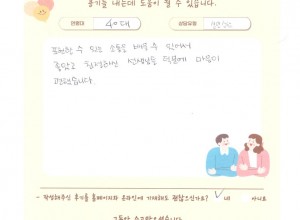 용기를 내는데 도움이 될 수 있습니다.
연령대 40대 상담유형
표현할 수 있는 방법을 배울 수 있어서
좋았고 친절하신 선생님들 덕분에 마음이
편했습니다
- 작성해주신 후기를 홈페이지와 온라인에 기재해도 괜찮으신가요? ✓ 네 아니오
그동안 수고많으셨습니다